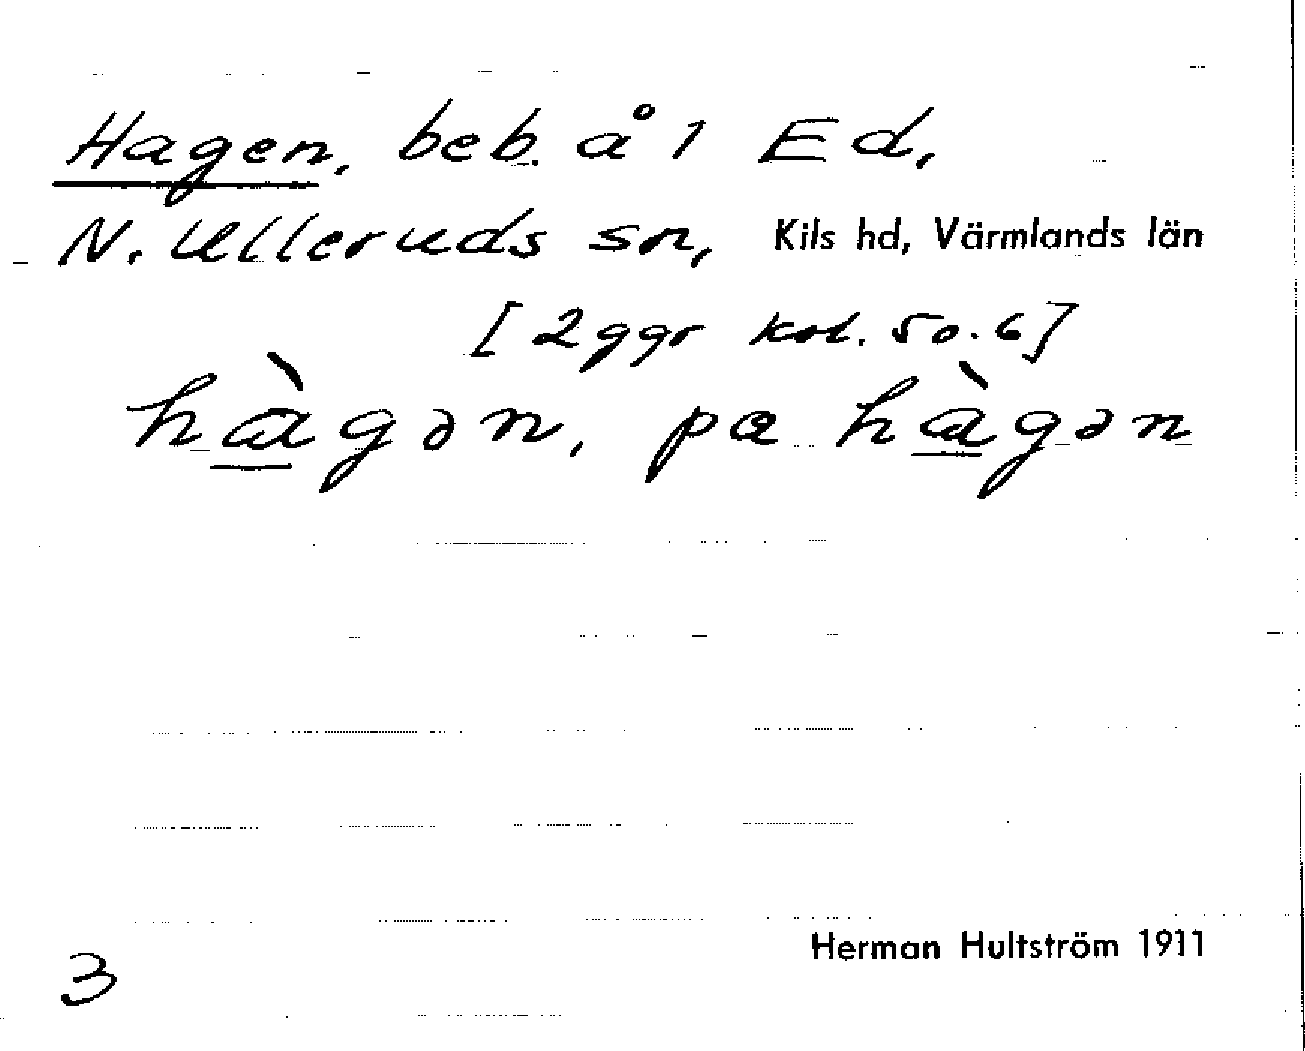 Hagen, beb. å 1 Ed,
N. Ulleruds sn, Kils hd, Värmlands län
[2ggr kol. 50.6]
hàgən, pa hàgən
Herman Hultström 1911
3